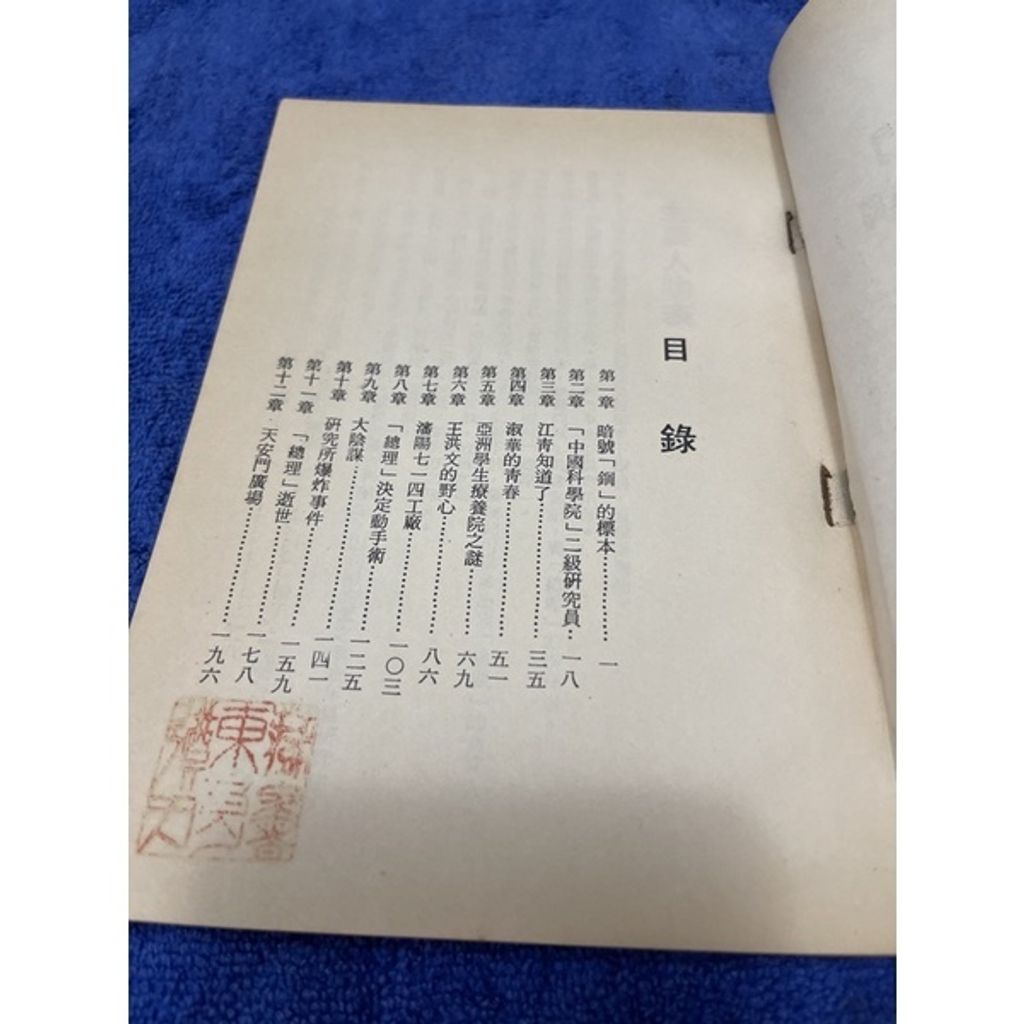 目錄
第一章 暗號「鋼」的標本…………一
第二章 「中國科學院」二級研究員…一八
第三章 江青知道了…………三五
第四章 淑華的青春…………五一
第五章 亞洲學生療養院之謎…………六九
第六章 王洪文的野心…………八六
第七章 瀋陽七一四工廠…………一〇三
第八章 「總理」決定動手術…………一二五
第九章 大陰謀…………一四一
第十章 研究所爆炸事件…………一五九
第十一章 「總理」逝世…………一七八
第十二章 天安門廣場…………一九六
東吳